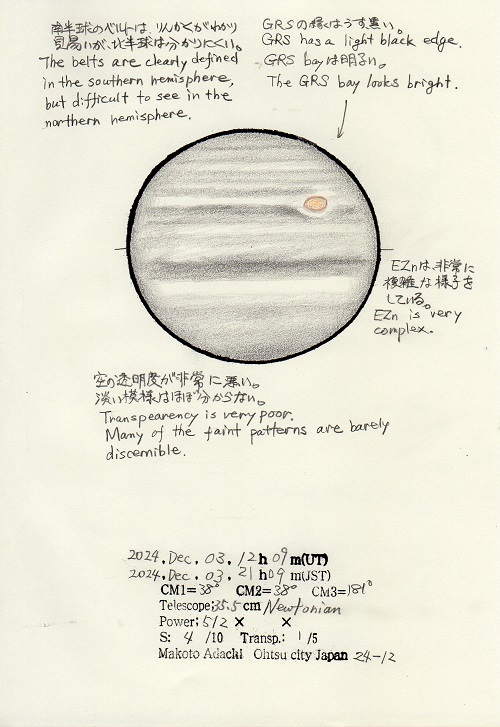 南半球のベルトは、りんかくがわかり
易いが、北半球は分かりにくい。
The belts are clearly defined
in the southern hemisphere,
but difficult to see in the
northern hemisphere.
GRSの縁はうす黒い。
GRS has a light black edge.
GRS bayは明るい。
The GRS bay looks bright.
EZnは、非常に
複雑な様子を
している。
EZn is very
complex.
空の透明度が非常に悪い。
淡い模様はほぼ分からない。
Transpearency is very poor.
Many of the faint patterns are barely
discernible.
2024, Dec, 03, 12h 09 m(UT)
2024, Dec, 03, 21 h09 m(JST)
CM1=38° CM2=38° CM3=181°
Telescope;35.5 cm Newtonian
Power; 512 × ×
S: 4 /10 Transp.: 1 /5
Makoto Adachi Ohtsu city Japan 24-12